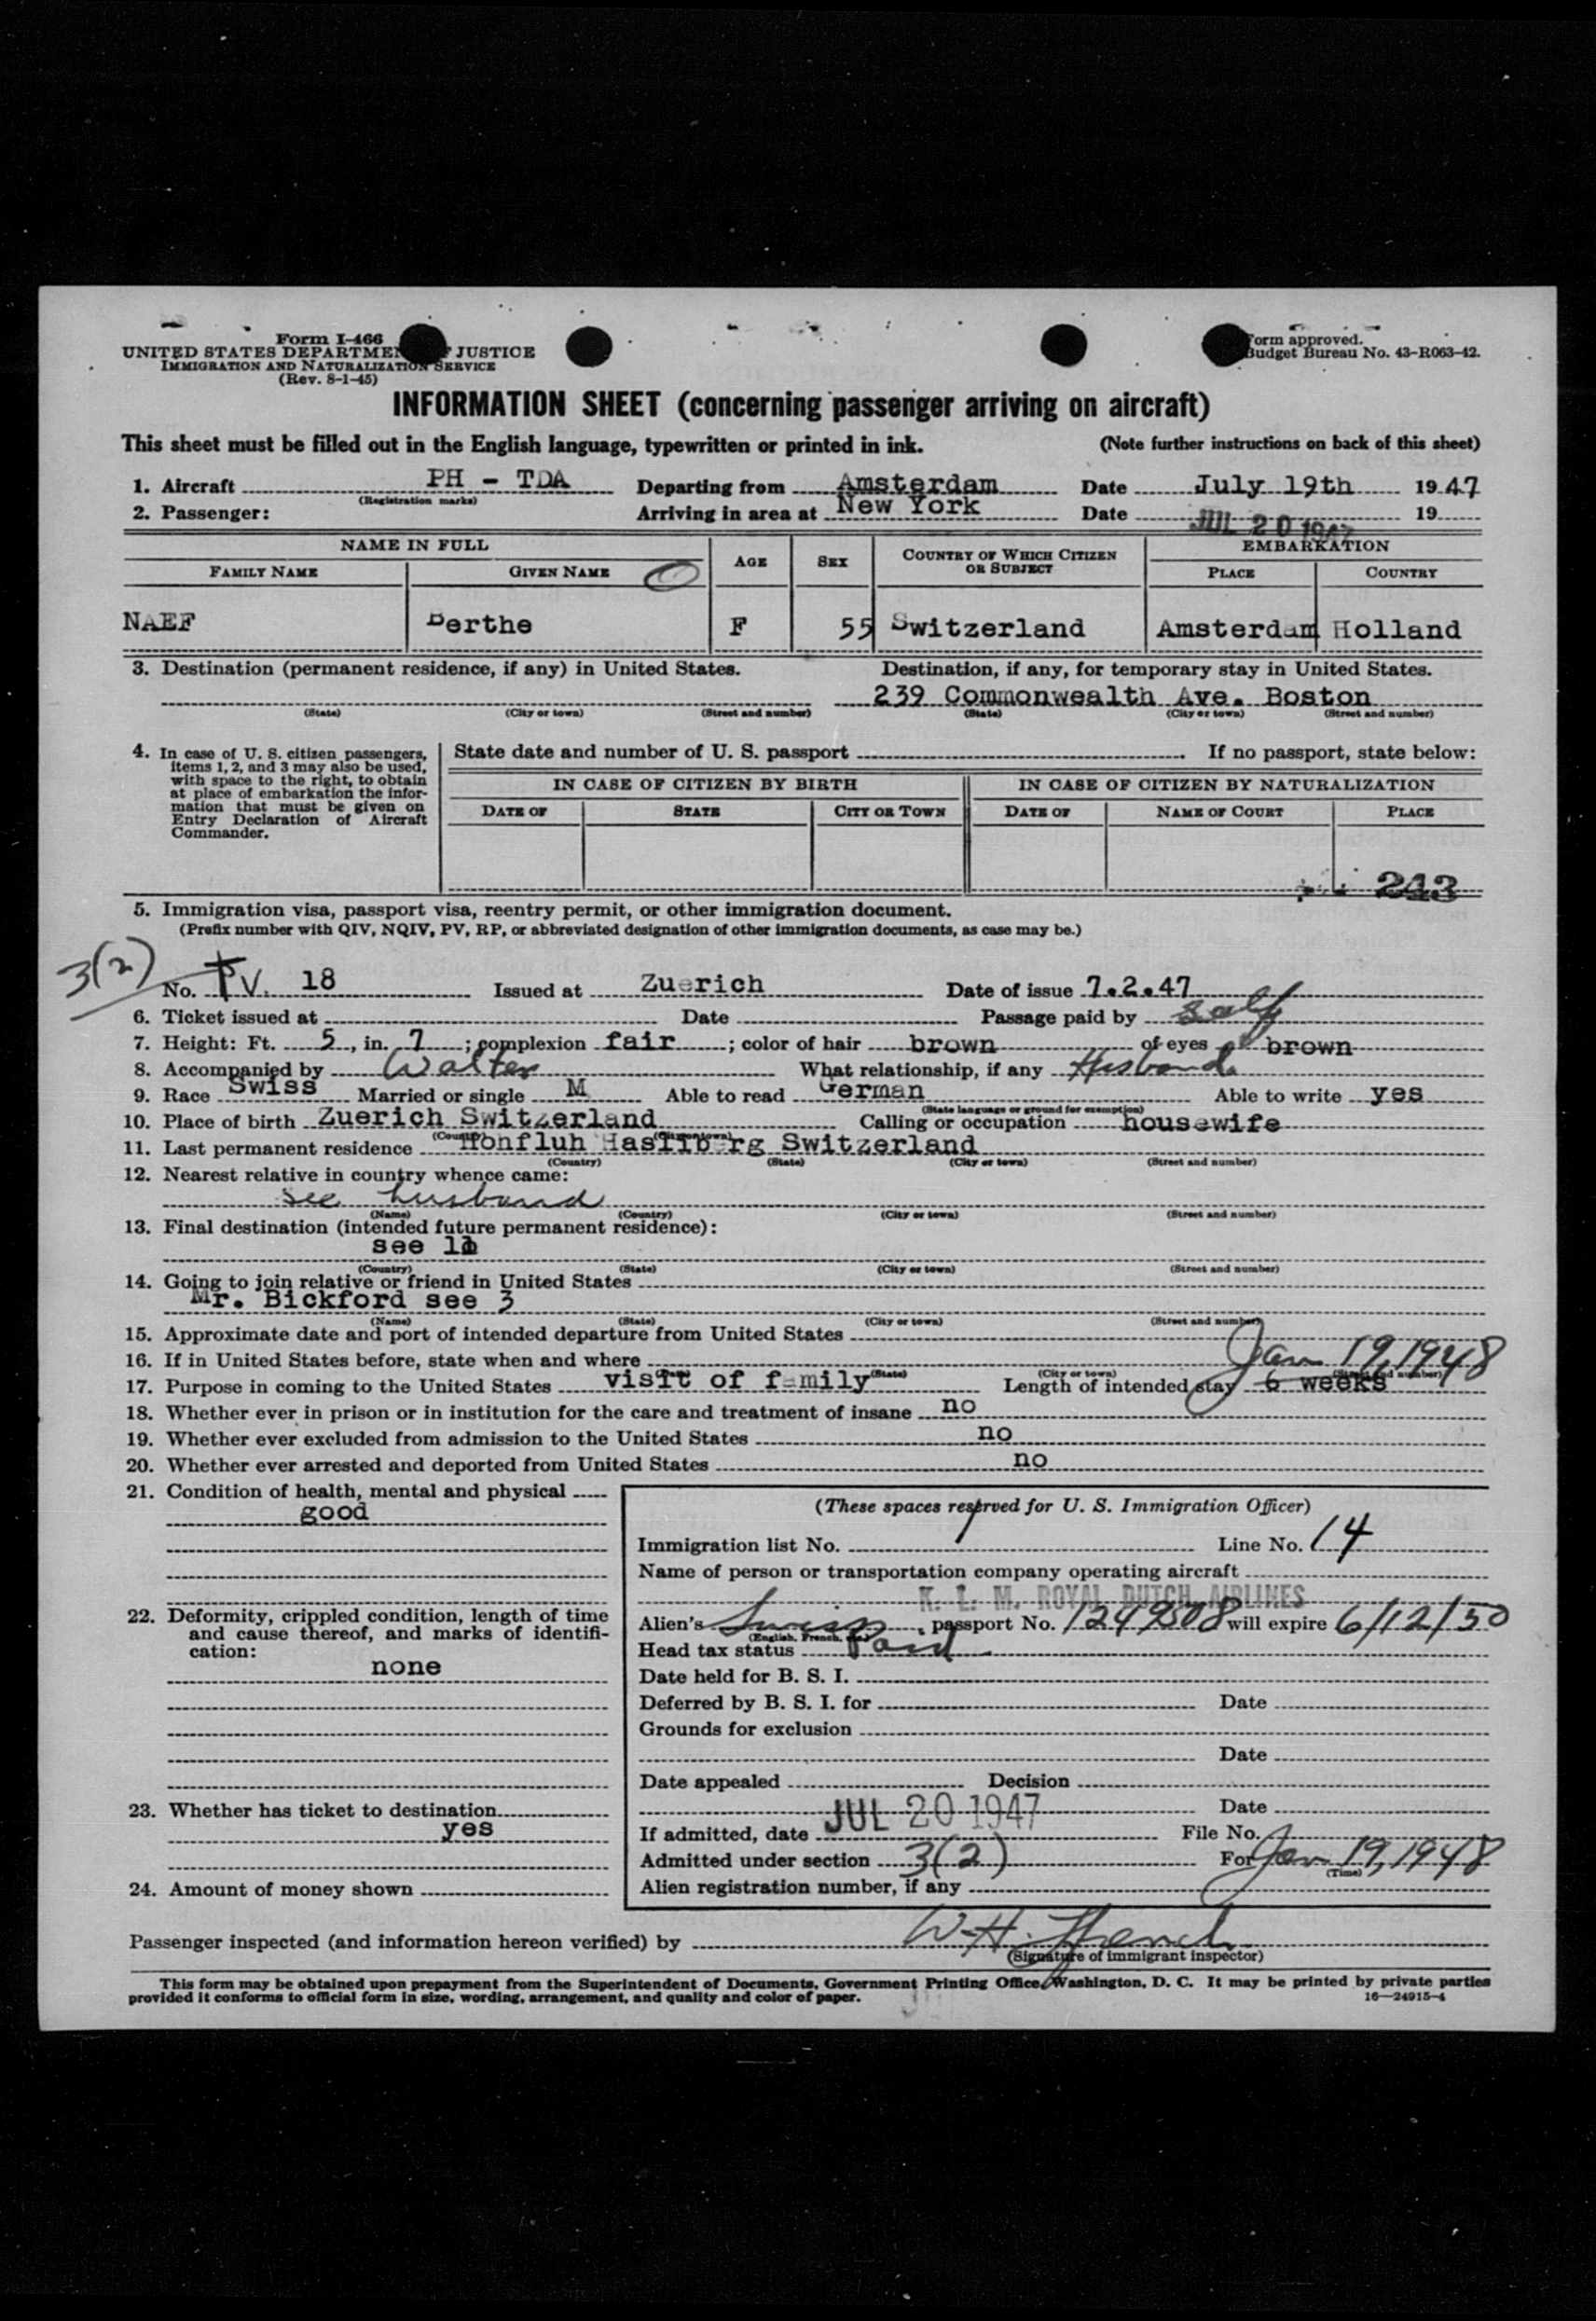 Form I-466
UNITED STATES DEPARTMENT OF JUSTICE
IMMIGRATION AND NATURALIZATION SERVICE
(Rev. 8-1-45)
Form approved.
Budget Bureau No. 43-R063-42.
INFORMATION SHEET (concerning passenger arriving on aircraft)
This sheet must be filled out in the English language, typewritten or printed in ink. (Note further instructions on back of this sheet)
1. Aircraft PH - TDA Departing from Amsterdam Date July 19th 1947
(Registration marks)
2. Passenger: Arriving in area at New York Date JUL 20 1947 19
NAME IN FULL AGE SEX COUNTRY OF WHICH CITIZEN OR SUBJECT EMBARKATION
FAMILY NAME GIVEN NAME PLACE COUNTRY
NAEF Berthe F 55 Switzerland Amsterdam Holland
3. Destination (permanent residence, if any) in United States. Destination, if any, for temporary stay in United States.
239 Commonwealth Ave. Boston
(State) (City or town) (Street and number) (State) (City or town) (Street and number)
4. In case of U. S. citizen passengers, items 1, 2, and 3 may also be used, with space to the right, to obtain at place of embarkation the information that must be given on Entry Declaration of Aircraft Commander.
State date and number of U. S. passport If no passport, state below:
IN CASE OF CITIZEN BY BIRTH IN CASE OF CITIZEN BY NATURALIZATION
DATE OF STATE CITY OR TOWN DATE OF NAME OF COURT PLACE
243
5. Immigration visa, passport visa, reentry permit, or other immigration document.
(Prefix number with QIV, NQIV, PV, RP, or abbreviated designation of other immigration documents, as case may be.)
3(2)
No. PV. 18 Issued at Zuerich Date of issue 7.2.47
6. Ticket issued at Date Passage paid by self
7. Height: Ft. 5, in. 7; complexion fair; color of hair brown of eyes brown
8. Accompanied by Walter What relationship, if any Husband
9. Race Swiss Married or single M Able to read German Able to write yes
(State language or ground for exemption)
10. Place of birth Zuerich Switzerland Calling or occupation housewife
(Country) (City or town)
11. Last permanent residence Hohfluh Hasliberg Switzerland
(Country) (State) (City or town) (Street and number)
12. Nearest relative in country whence came:
see husband
(Name) (Country) (City or town) (Street and number)
13. Final destination (intended future permanent residence):
see 11
(Country) (State) (City or town) (Street and number)
14. Going to join relative or friend in United States
Mr. Bickford see 3
(Name) (State) (City or town) (Street and number)
15. Approximate date and port of intended departure from United States
16. If in United States before, state when and where Jan 19, 1948
(State) (City or town) (Street and number)
17. Purpose in coming to the United States visit of family Length of intended stay 6 weeks
18. Whether ever in prison or in institution for the care and treatment of insane no
19. Whether ever excluded from admission to the United States no
20. Whether ever arrested and deported from United States no
21. Condition of health, mental and physical
good
22. Deformity, crippled condition, length of time and cause thereof, and marks of identification:
none
23. Whether has ticket to destination
yes
24. Amount of money shown
(These spaces reserved for U. S. Immigration Officer)
Immigration list No. Line No. 14
Name of person or transportation company operating aircraft
K. L. M. ROYAL DUTCH AIRLINES
Alien's Swiss passport No. 1249508 will expire 6/12/50
Head tax status Paid
Date held for B. S. I.
Deferred by B. S. I. for Date
Grounds for exclusion
Date
Date appealed Decision
Date
If admitted, date JUL 20 1947 File No.
Admitted under section 3(2) For Jan 19, 1948
(Time)
Alien registration number, if any
Passenger inspected (and information hereon verified) by W. H. French
(Signature of immigrant inspector)
This form may be obtained upon prepayment from the Superintendent of Documents, Government Printing Office, Washington, D. C. It may be printed by private parties
provided it conforms to official form in size, wording, arrangement, and quality and color of paper. 16—24915-4